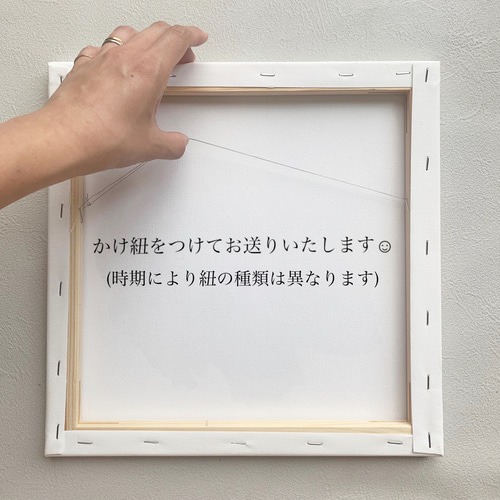 かけ紐をつけてお送りいたします☺
(時期により紐の種類は異なります)